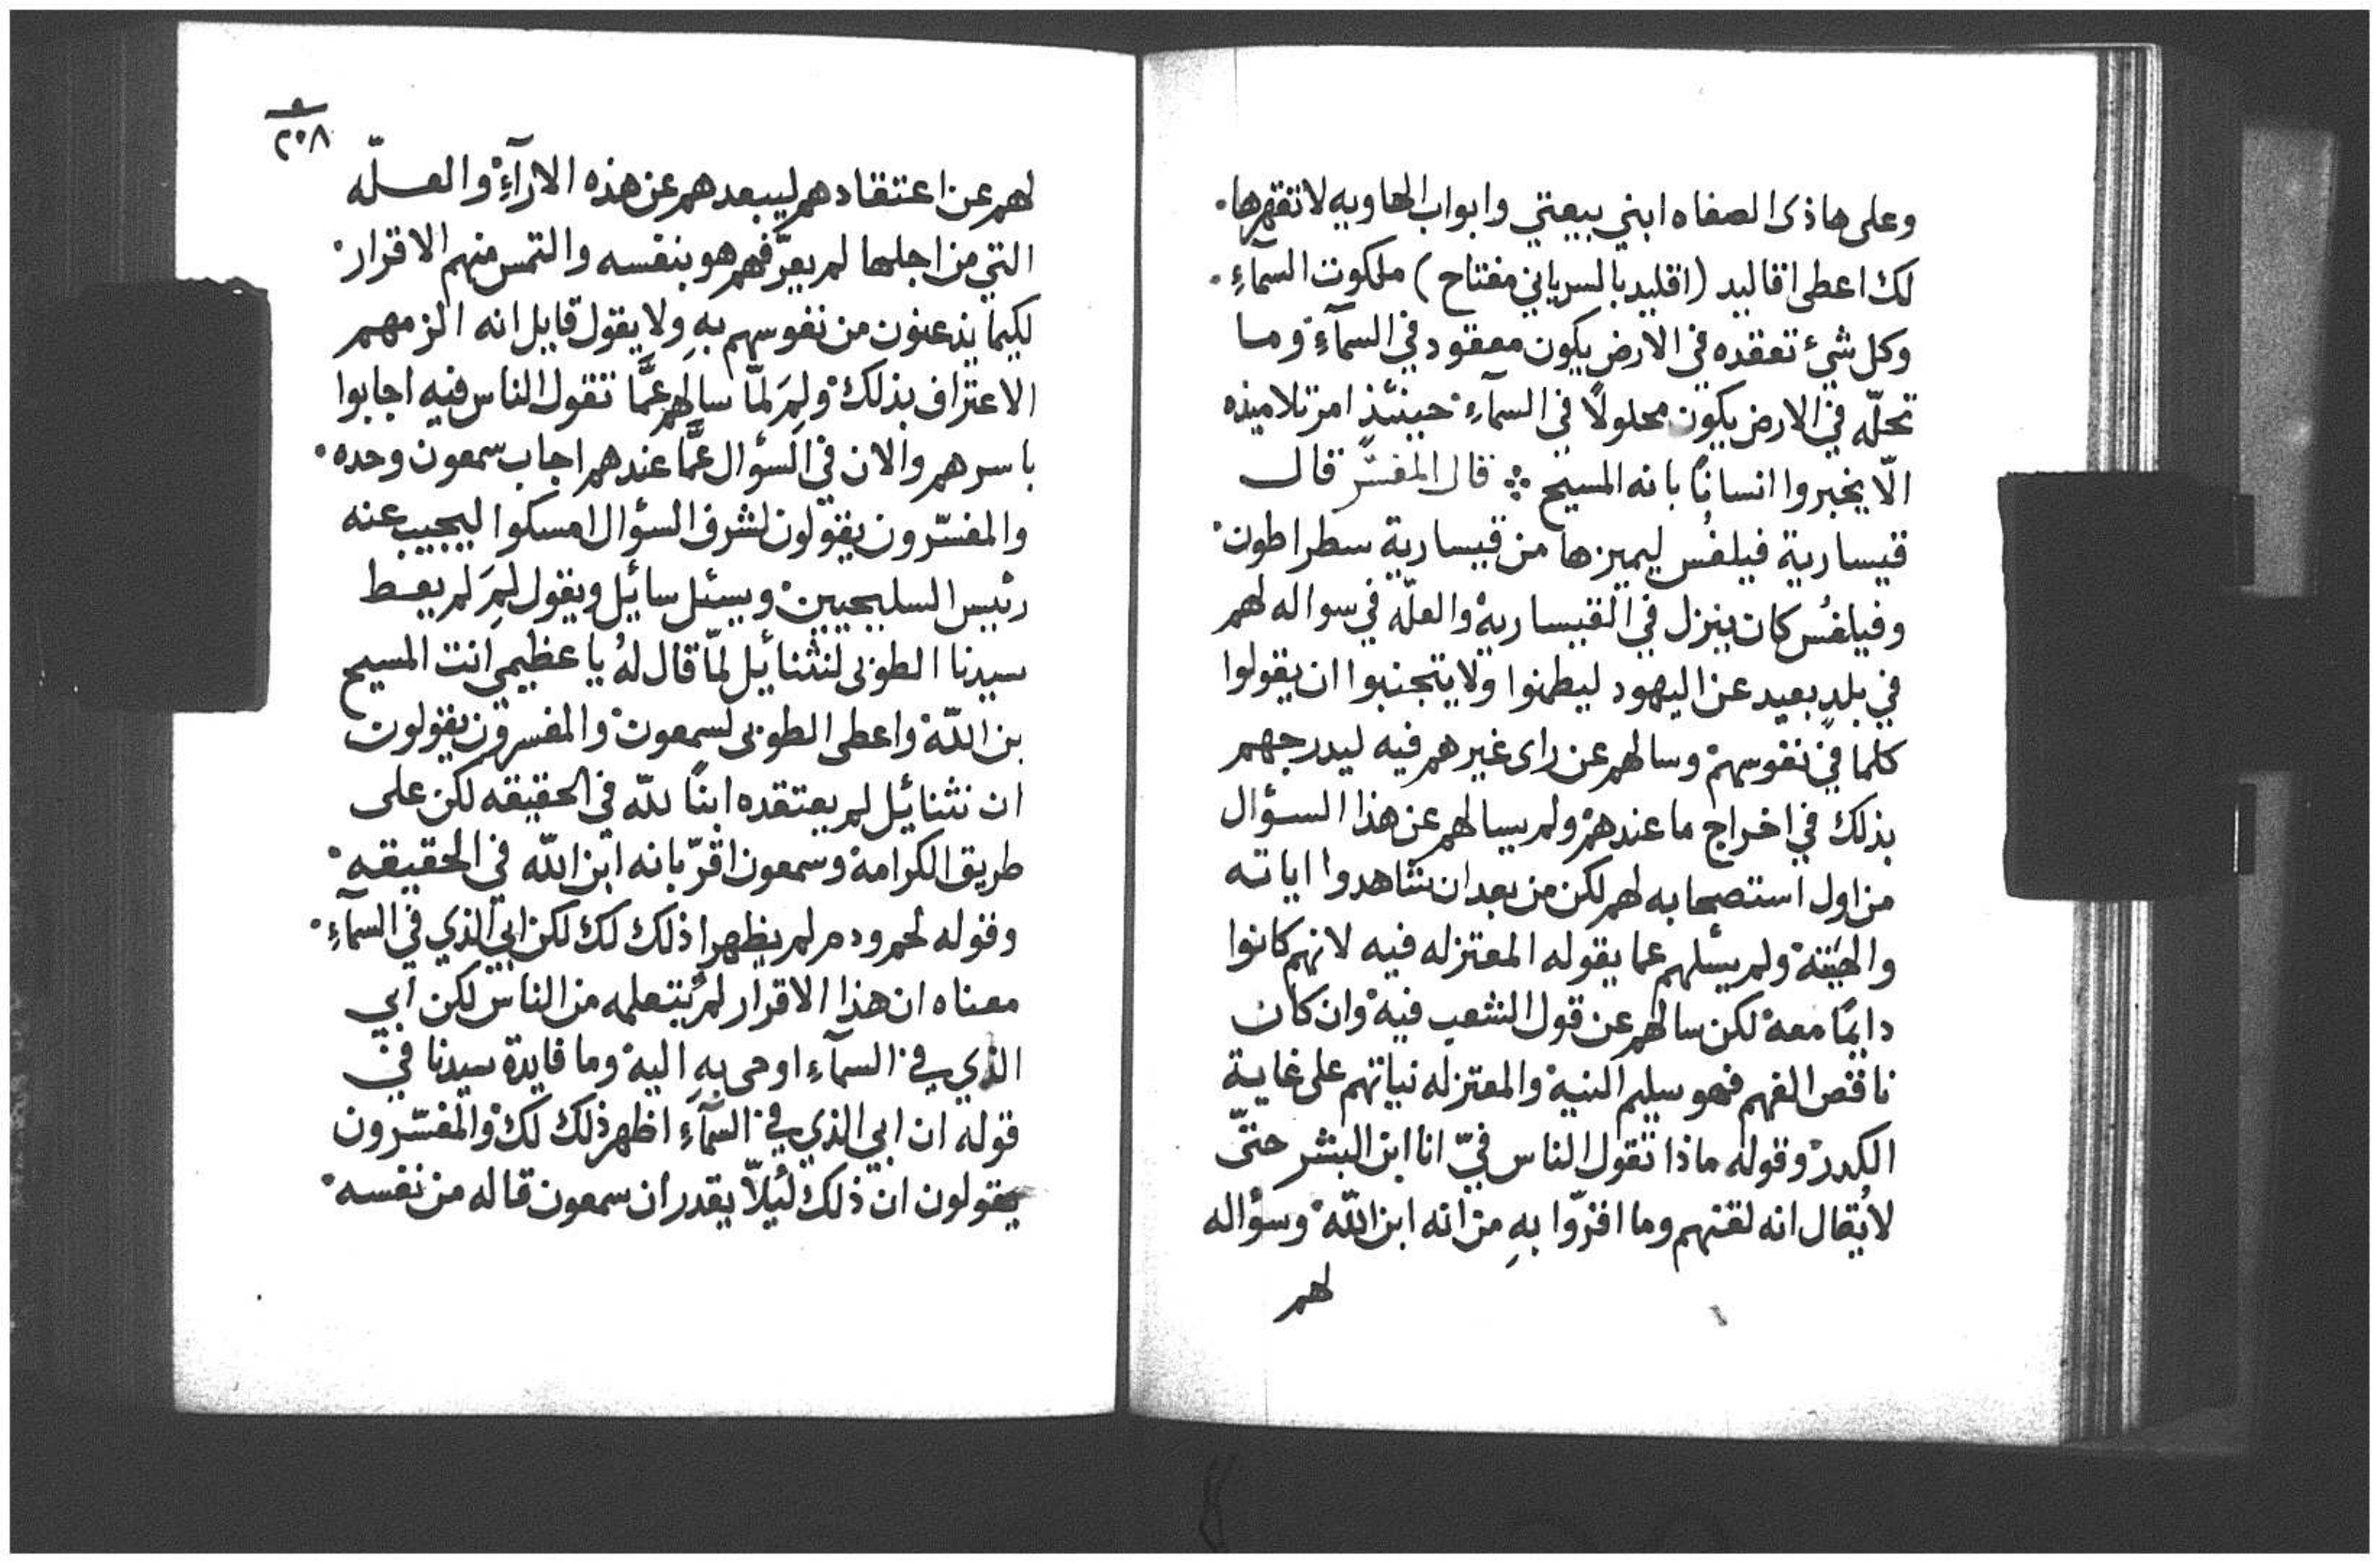 وعلى هاذى الصفاه ابني بيعتي وابواب الهاويه لا تقهرها.
لك اعطى اقاليد (اقليد بالسرياني مفتاح) ملكوت السمآءِ.
وكل شيء تعقده في الارض يكون معقود في السمآءِ وما
تحلّه في الارض يكون محلولًا في السمآءِ حينئذٍ امر تلاميذه
الّا يخبروا انسانًا بانه المسيح ܀ قال المفسّر قال
قيسارية فيلفُس ليميزها من قيسارية سطراطون
وفيلفُس كان ينزل في القيساريه والعلّه في سواله لهم
في بلدٍ بعيد عن اليهود ليطمنوا ولا يتجنبوا ان يقولوا
كلما في نفوسهم وسالهم عن راى غيرهم فيه ليدرجهم
بذلك في اخراج ما عندهم ولم يسالهم عن هذا السؤال
من اول استصحابه لهم لكن من بعد ان شاهدوا اياته
ولم يسئلهم عما يقوله المعتزله فيه لانهم كانوا
دايمًا معه لكن سالهم عن قول الشعب فيه وان كان
ناقص الفهم فهو سليم النيه والمعتزله نياتهم على غاية
الكدر وقوله ماذا تقول الناس فيّ انا ابن البشر حتّى
لا يُقال انه لقنهم وما اقرّوا بهِ من انه ابن اللّه وسؤاله
لهم
٢٥٨
لهم عن اعتقادهم ليبعدهم عن هذه الارآءِ والعلّه
التي من اجلها لم يعرّفهم هو بنفسه والتمس منهم الاقرار
لكيما يذعنون من نفوسهم بهِ ولا يقول قايل انه الزمهم
الاعتراف بذلك ولِمَ لمّا سالهم عمَّا تقول الناس فيه اجابوا
باسرهم والان في السؤال عمَّا عندهم اجاب سمعون وحده
والمفسّرون يقولون لشرف السؤال امسكوا ليجيب عنه
رئيس السليحيين ويسئل سايل ويقول لِمَ لم يعط
سيدنا الطوبى لنثنائيل لمّا قال لهُ يا عظيمي انت المسيح
بن اللّه واعطى الطوبى لسمعون والمفسرون يقولون
ان نثنائيل لم يعتقده ابنًا للّه في الحقيقه لكن على
طريق الكرامه وسمعون اقرّ بانه ابن اللّه في الحقيقه
وقوله لحم ودم لم يظهرا ذلك لك لكن ابي الذي في السمآءِ
معناه ان هذا الاقرار لم يُتعلمه من الناس لكن ابي
الذي في السمآءِ اوحى بهِ اليه وما فايدة سيدنا في
قوله ان ابي الذي في السمآءِ اظهر ذلك لك والمفسّرون
يقولون ان ذلك لئيلّا يقدر ان سمعون قاله من نفسه